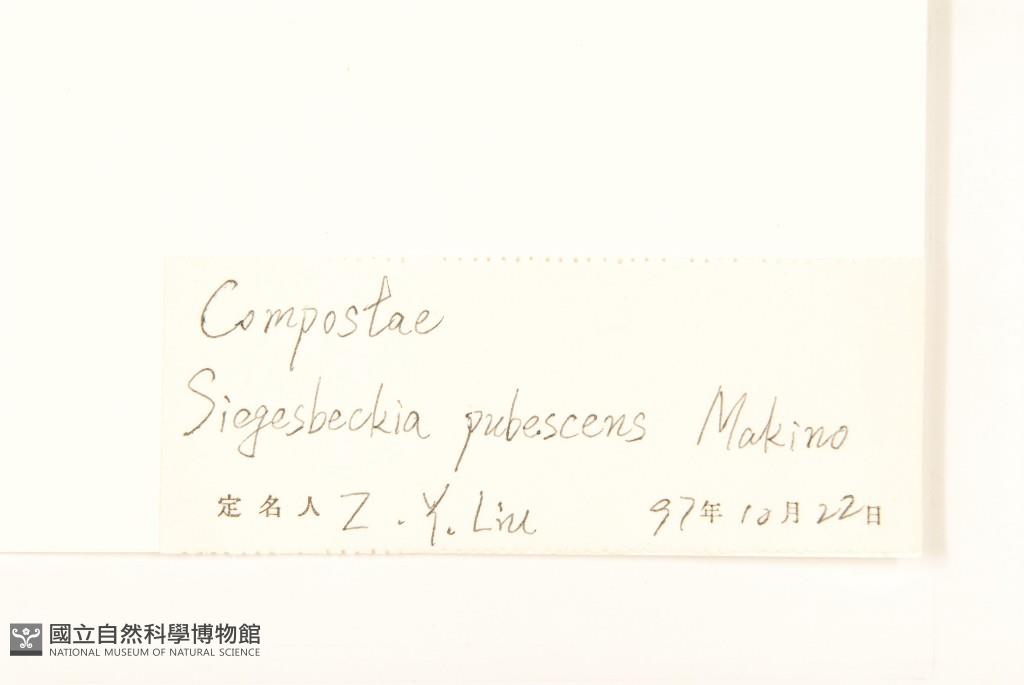 Compostae
Siegesbeckia pubescens Makino
定名人 Z. Y. Liu 97年10月22日
國立自然科學博物館
NATIONAL MUSEUM OF NATURAL SCIENCE